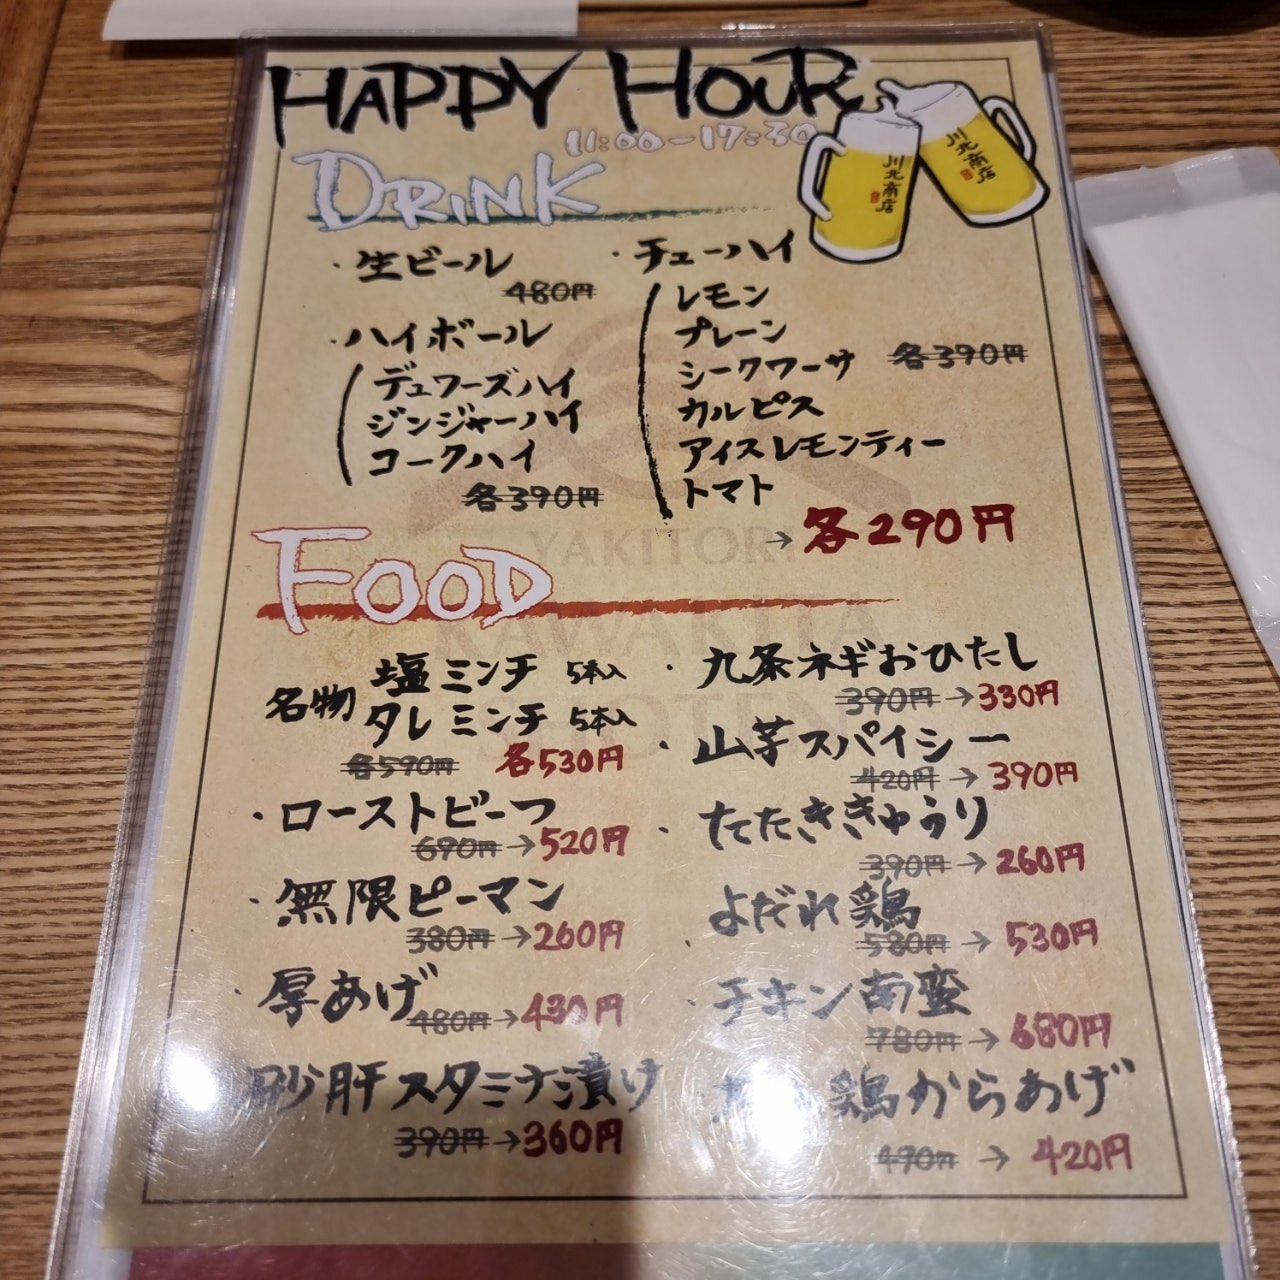 HAPPY HOUR
11:00-17:30
川北商店
川北商店
DRINK
・生ビール
480円
・ハイボール
デュワーズハイ
ジンジャーハイ
コークハイ
各390円
・チューハイ
レモン
プレーン
シークワーサ
各390円
カルピス
アイスレモンティー
トマト
→各290円
YAKITORI
KAWAKITA
FOOD
名物
塩ミンチ 5本入
タレミンチ 5本入
各590円 各530円
・ローストビーフ
690円→520円
・無限ピーマン
380円→260円
・厚あげ
480円→430円
砂肝スタミナ漬け
390円→360円
・九条ネギおひたし
390円→330円
・山芋スパイシー
420円→390円
・たたききゅうり
390円→260円
・よだれ鶏
580円→530円
・チキン南蛮
780円→680円
鶏からあげ
490円→420円